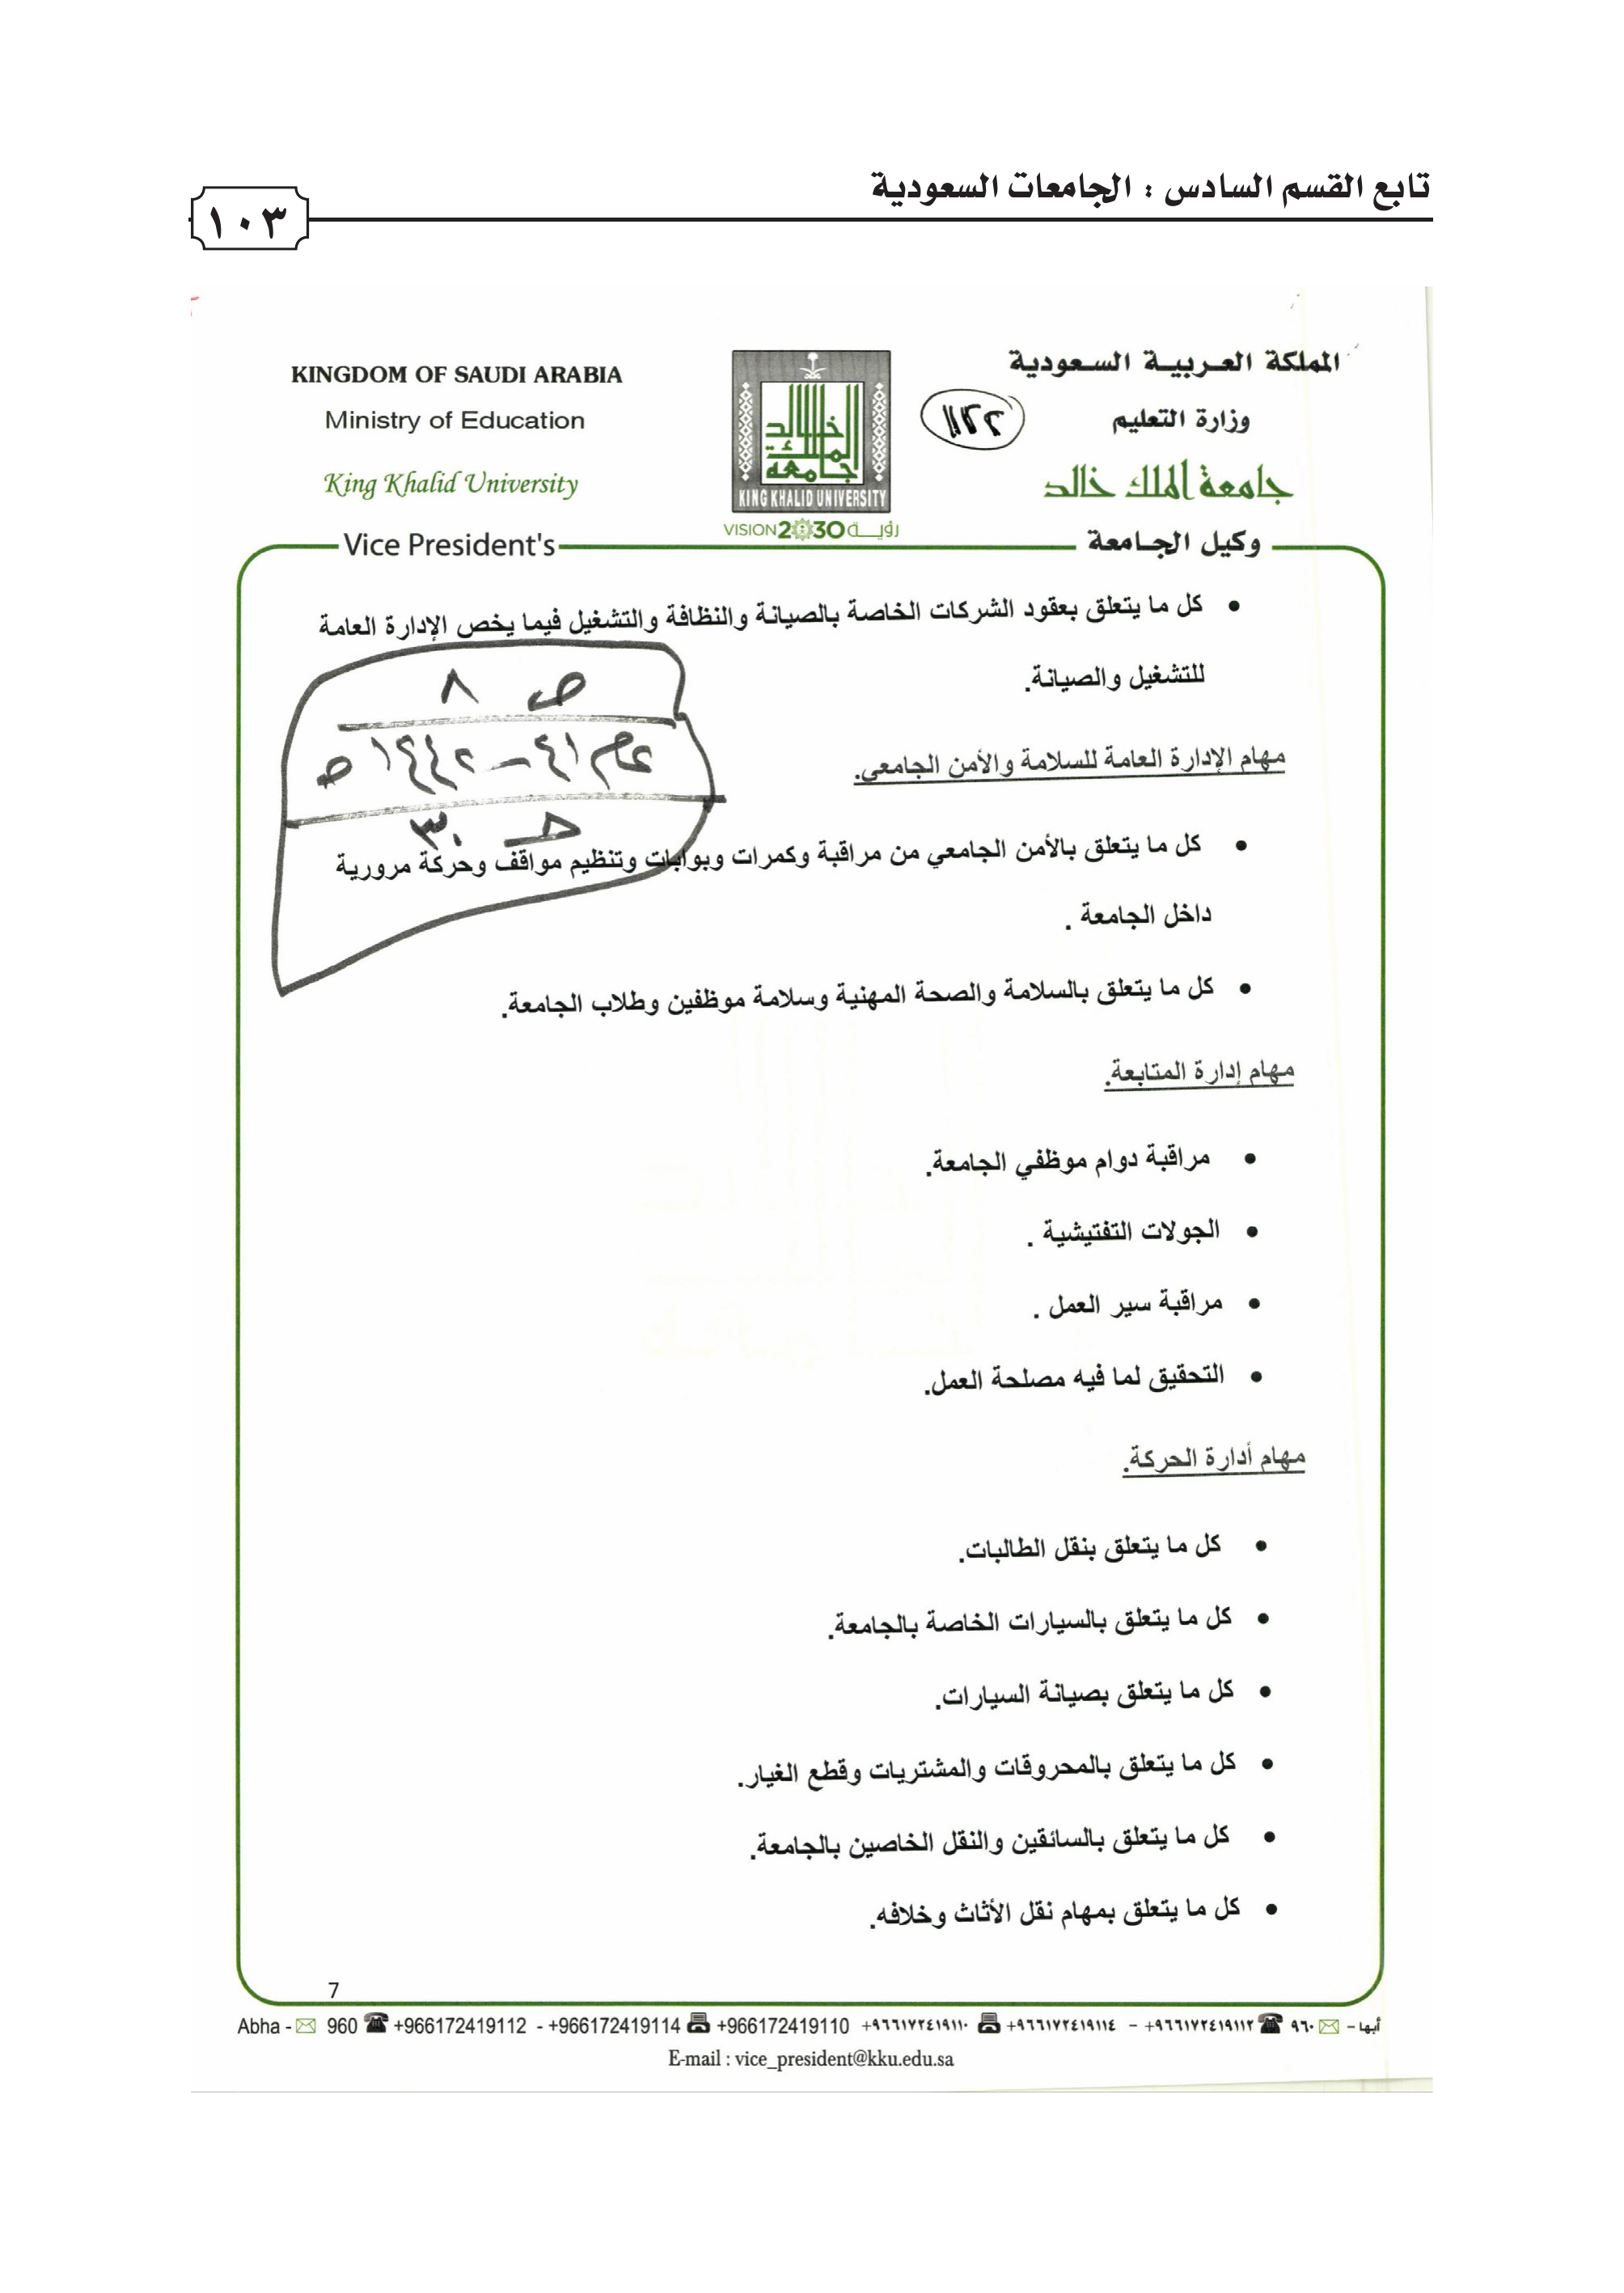 تابع القسم السادس : الجامعات السعودية
١٠٣
المملكة العربية السعودية
وزارة التعليم
جامعة الملك خالد
وكيل الجامعة
KINGDOM OF SAUDI ARABIA
Ministry of Education
King Khalid University
Vice President's
جامعة الملك خالد
KING KHALID UNIVERSITY
VISION 2030 رؤيـــة
• كل ما يتعلق بعقود الشركات الخاصة بالصيانة والنظافة والتشغيل فيما يخص الإدارة العامة
للتشغيل والصيانة.
ص ٨
عام ٤١ – ١٤٤٢ هـ
حـ ٣٠
مهام الإدارة العامة للسلامة والأمن الجامعي.
• كل ما يتعلق بالأمن الجامعي من مراقبة وكمرات وبوابات وتنظيم مواقف وحركة مرورية
داخل الجامعة .
• كل ما يتعلق بالسلامة والصحة المهنية وسلامة موظفين وطلاب الجامعة.
مهام إدارة المتابعة.
• مراقبة دوام موظفي الجامعة.
• الجولات التفتيشية .
• مراقبة سير العمل .
• التحقيق لما فيه مصلحة العمل.
مهام أدارة الحركة.
• كل ما يتعلق بنقل الطالبات.
• كل ما يتعلق بالسيارات الخاصة بالجامعة.
• كل ما يتعلق بصيانة السيارات.
• كل ما يتعلق بالمحروقات والمشتريات وقطع الغيار.
• كل ما يتعلق بالسائقين والنقل الخاصين بالجامعة.
• كل ما يتعلق بمهام نقل الأثاث وخلافه.
7
Abha - 960 +966172419112 - +966172419114 +966172419110 +٩٦٦١٧٢٤١٩١١٠ +٩٦٦١٧٢٤١٩١١٤ – +٩٦٦١٧٢٤١٩١١٢ ٩٦٠ – أبها
E-mail : vice_president@kku.edu.sa